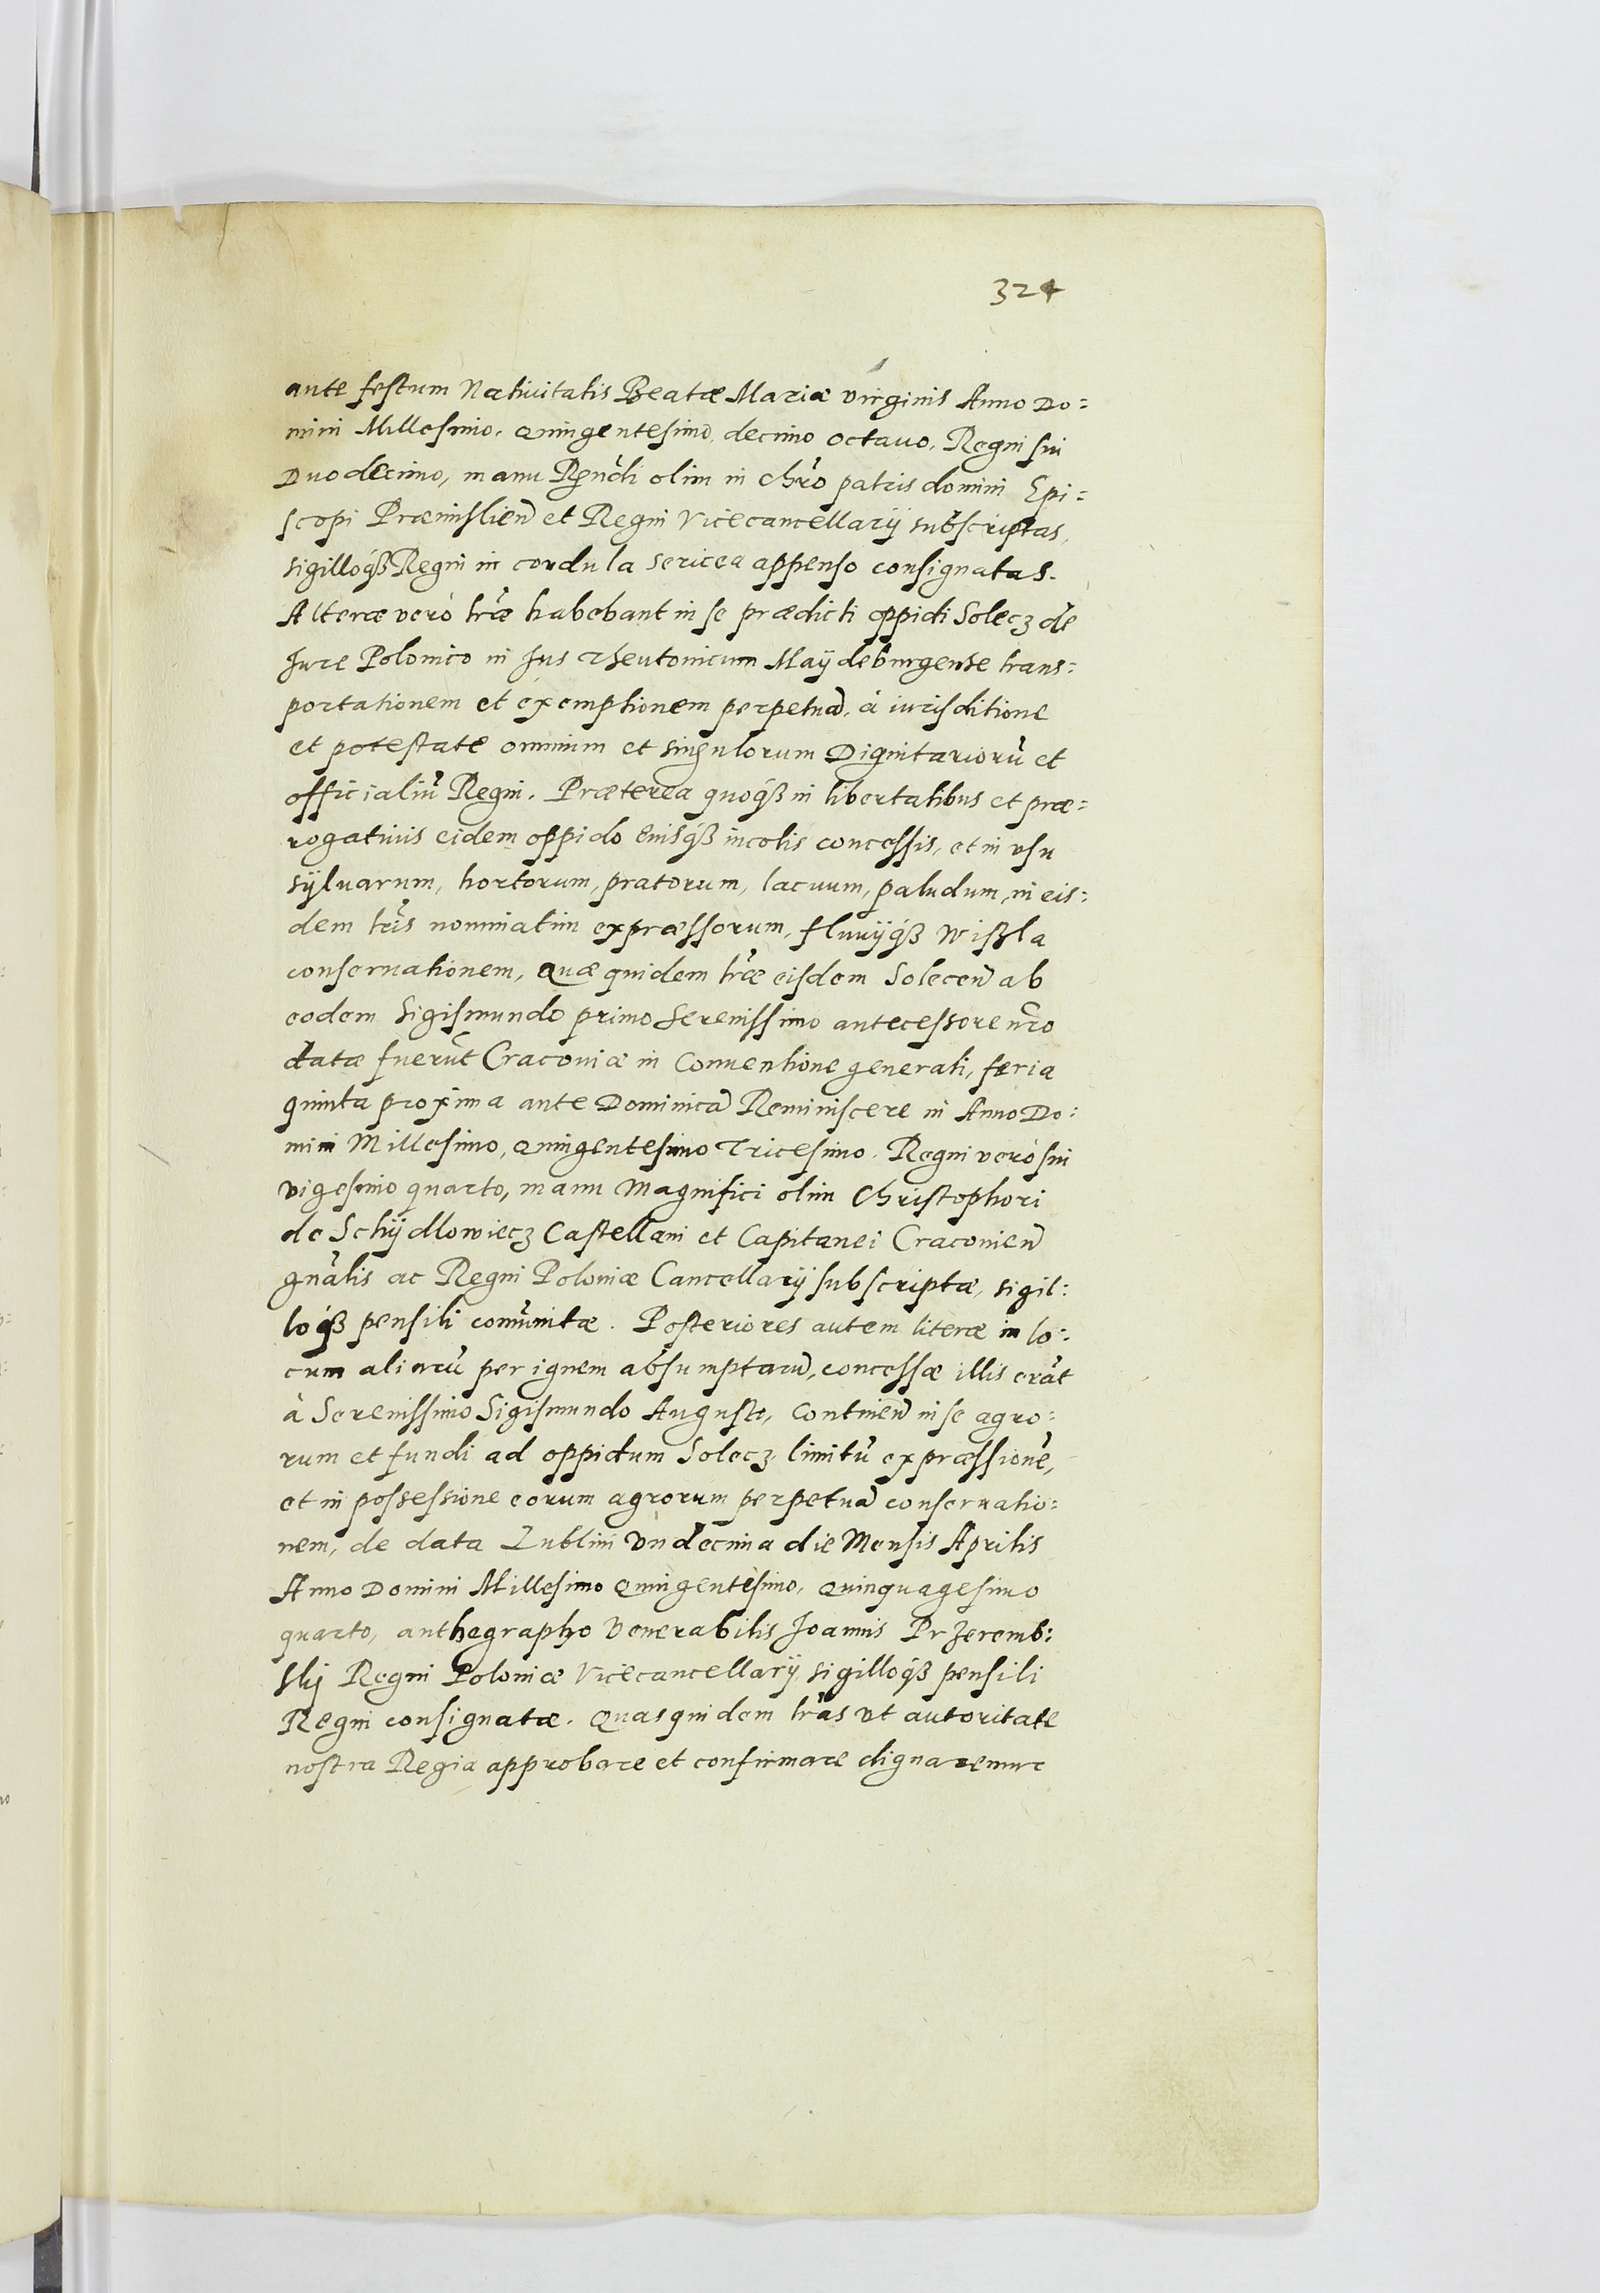 324
ante festum Natiuitatis Beatæ Mariæ virginis Anno Do=
mini Millesimo, Quingentesimo, decimo octauo, Regni sui
Duodecimo, manu Rendi olim in chro patris domini Epi=
scopi Præmislien et Regni Vicecancellarij subscriptas,
sigilloqß Regni in cordula sericea appenso consignatas.
Alteræ verò lræ habebant in se prædicti oppidi Solecz de
Jure Polonico in Jus Theutonicum Maydeburgense trans=
portationem et exemptionem perpetuã, à iurisditione
et potestate omnium et singulorum Dignitariorũ et
officialiũ Regni. Præterea quoqß in libertatibus et præ=
rogatiuis eidem oppido eiusqß incolis concessis, et in vsu
syluarum, hortorum, pratorum, lacuum, paludum, in eis=
dem lris nominatim expræssorum, fluuijqß Wißla
conseruationem, Quæ quidem lræ eisdem Solecen ab
eodem Sigismundo primo Serenissimo antecessore nro
datæ fuerũt Cracouiæ in Conuentione generali, feria
quinta proxima ante Dominicã Reminiscere in Anno Do=
mini Millesimo, Quingentesimo Tricesimo. Regni verò sui
vigesimo quarto, manu Magnifici olim Christophori
de Schydlowiecz Castellani et Capitanei Cracouien
gnalis ac Regni Poloniæ Cancellarij subscriptæ, sigil=
loqß pensili comũnitæ. Posteriores autem literæ in lo=
cum aliarũ per ignem absumptarũ, concessæ illis erãt
à Serenissimo Sigismundo Augusto, Continen in se agro=
rum et fundi ad oppidum Solecz limitũ expræssionẽ,
et in possessione eorum agrorum perpetuã conseruatio=
nem, de data Lublini Vndecima die Mensis Aprilis
Anno Domini Millesimo Quingentesimo, Quinquagesimo
quarto, anthegrapho Venerabilis Joannis Przeremb=
skj Regni Poloniæ Vicecancellarij sigilloqß pensili
Regni consignatæ. Quas quidem lras vt autoritate
nostra Regia approbare et confirmare dignaremur